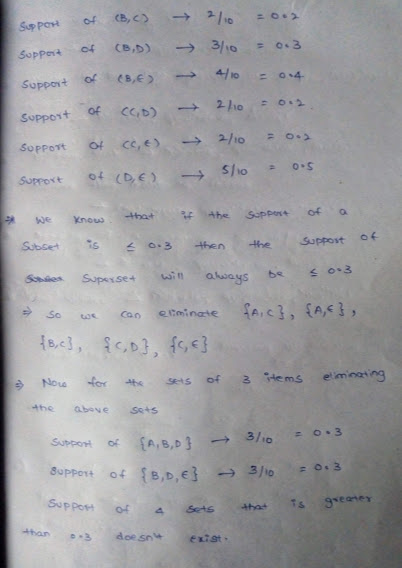 Support of (B,C) → 2/10 = 0.2
Support of (B,D) → 3/10 = 0.3
Support of (B,E) → 4/10 = 0.4
Support of (C,D) → 2/10 = 0.2.
Support of (C,E) → 2/10 = 0.2
Support of (D,E) → 5/10 = 0.5
⇒ We know that if the support of a
subset is ≤ 0.3 then the support of
superset will always be ≤ 0.3
⇒ So we can eliminate {A,C}, {A,E},
{B,C}, {C,D}, {C,E}
⇒ Now for the sets of 3 items eliminating
the above sets
Support of {A,B,D} → 3/10 = 0.3
Support of {B,D,E} → 3/10 = 0.3
Support of 4 sets that is greater
than 0.3 doesn't exist.